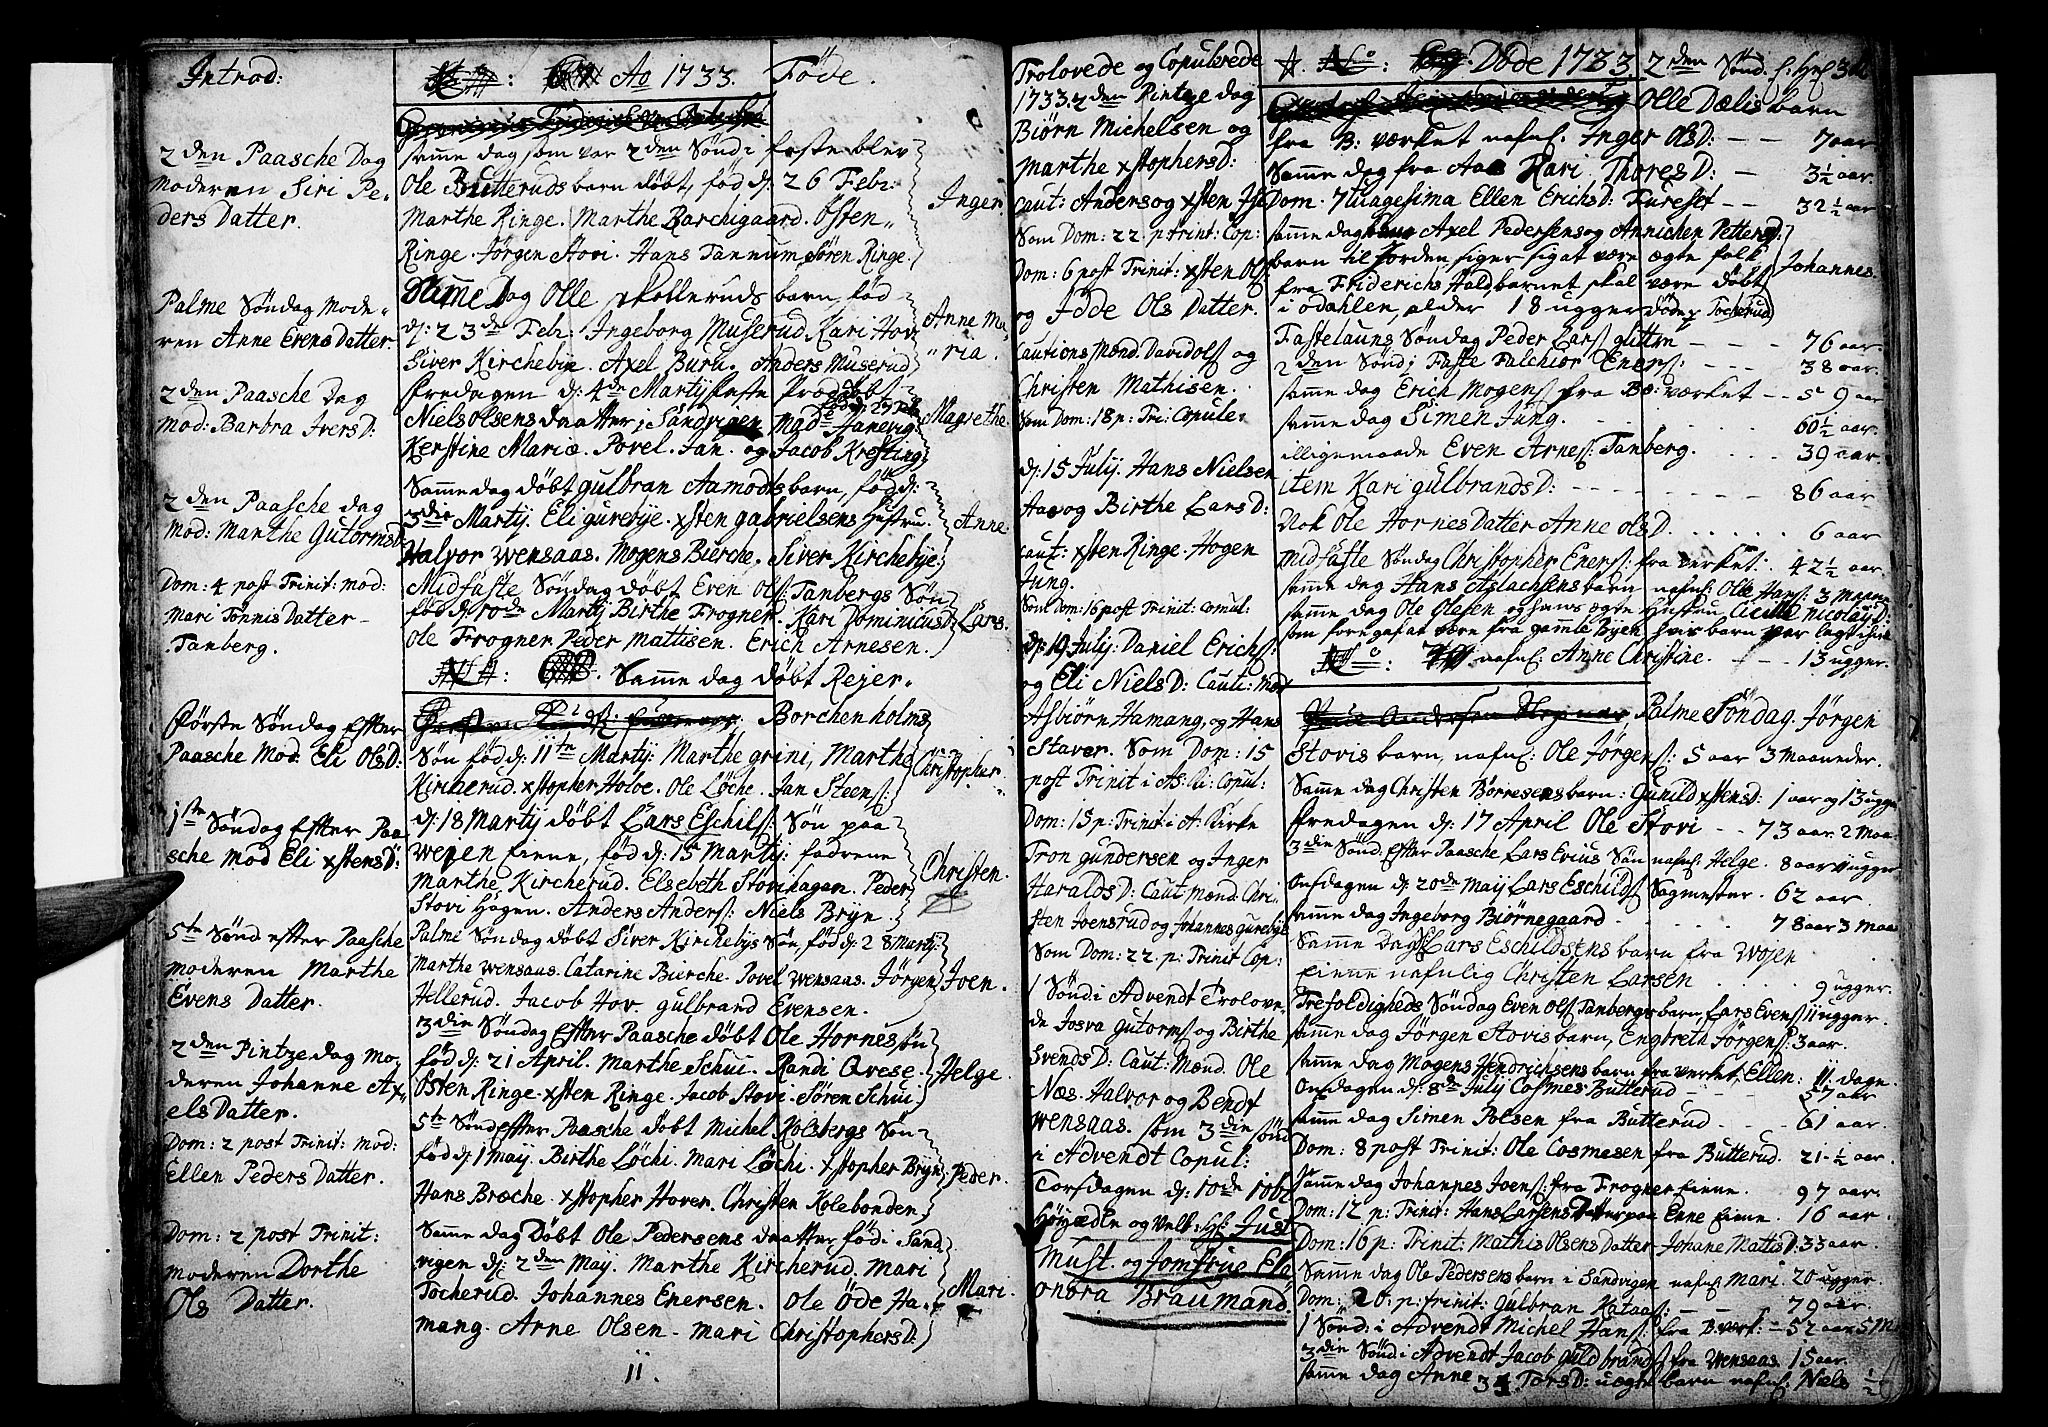 Introd:
2den Paasche Dag
moderen Siri Pe-
ders Datter.
Palme Söndag Mode-
ren Anne Evens Datter.
2den Paasche Dag
Mod: Barbra IversD:
2den Paasche dag
Mod: Marthe GutormsD
Dom: 4 post Trinit: mod:
Mari Tönnis Datter
Tanberg.
förste Söndag Efter
Paasche Mod: Eli OlsD:
1ste Söndag Efter Paa
sche Mod Eli xstensD:
5te Sönd efter Paasche
moderen Marthe
Evens Datter.
2den Pintze dag Mo,
deren Johanne Ax,
els Datter.
Dom: 2 post Trinit: Mod:
Ellen Peders Datter.
Dom: 2 post Trinit:
moderen Dorthe
Ols Datter.
Ao 1733. Föde.
samme dag som var 2den Sönd i faste blev
Ole Butteruds barn döbt, föd d: 26 Febr:
Marthe Ringe. Marthe Borchigaard. Östen
Ringe. Jörgen Stovi. Hans Tannum. Sören Ringe.
Inger.
Samme Dag Olle skolleruds barn, föd
d: 23de Feb: Ingeborg Muserud. Kari Hov
Siver Kirchebye. Axel Burud. Anders Muserud
Anne Ma,
ria.
fredagen d: 4de Martij faste Præd: döbt
Niels olsens daatter i Sandvigen Mad: Janevig
Kerstine Mariæ. Povel. Jan. og Jacob Kresting
Magrethe.
Samme dag döbt gulbran Aamodts barn, föd d:
3die Martij. Eli gurebye. xsten gabrielsens Hustru.
Halvor wensaas. Mogens Bierche. Siver Kirchebye
Anne.
Midfaste Söndag döbt Even Ols: Tanbergs Sön
föd d: 10de Martij Birthe Frogner. Kari DominicusD
Ole Frogner Peder Mattisen. Erich Arnesen.
Lars.
Samme dag döbt Rejer
Borchenholms
Sön föd d: 11te Martij: Marthe grini, Marthe
Kircherud. xstopher Holve. Ole Löche. Jan Steens:
Christopher.
d: 18 Martij döbt Lars Eschils: Sön paa
wepen Eiene, föd d: 15 Martij: fadrene
Marthe Kircherud. Elsebeth Stovihagen. Peder
Stovi Hagen. Anders Anders: Niels Bryn.
Christen.
Palme Söndag döbt Siver Kirchebys Sön, föd d: 28 Martij
Marthe wensaas. Catarine Bierche. Povel wensaas. Jörgen
Hellerud. Jacob Hov. gulbrand Evensen.
Joen.
3die Söndag Efter Paasche döbt Ole Hornes
föd d: 21 April. Marthe Schui. Randi Qvese.
Östen Ringe. xsten Ringe. Jacob Stovi. Sören Schui.
Helge.
5te Sönd Efter Paasche döbt Michel Kolsbergs Sön
föd d: 1 Maij. Birthe Löchi. Mari Löchi. xstopher Bryn.
Hans Broche. xstopher Hover. Christen Kolebonden.
Peder.
Samme dag Döbt Ole Pedersens daatter föd i Sand
vigen d: 2den Maij. Marthe Kircherud. Mari
Tocherud. Johannes Enersen. Ole Öde Ha
mang. Arne Olsen. Mari ChristophersD:
Mari.
11.
Trolovede og Copulerede
1733. 2den Pintze dag
Biörn Michelsen og
Marthe xstophersD:
Caut: Anders og xsten
Som Dom: 22. p: Trinit: Cop:
Dom: 6 post Trinit: xsten Ols
og Jöde Ols Datter.
Cautions Mænd. David Ols og
Christen Mathisen.
Som Dom: 18 p: Tri: Copule:
d: 15 July. Hans Nielsen
Aas og Birthe LarsD:
Caut: xsten Ringe. Hogen
Jung.
Som Dom: 16 post Trinit: Copul:
d: 19 July: Daniel Erichs:
og Eli NielsD: Caut: Mænd
Asbiörn Hamang, og Hans
Staver. Som Dom: 15
post Trinit i As. Ki: Copul:
Dom: 15 p: Trinit i A: Kirke
Tron gundersen og Inger
HaraldsD: Caut: Mænd. Chri,
sten Joensrud og Johannes gurebye
Som Dom: 22. p: Trinit Cop:
1 Sönd: i Advendt Trolove,
de Josva Gutorms og Birthe
SvendsD: Caut: Mænd. Ole
Næs. Halvor og Bendt
wensaas. Som 3die sönd
i Advendt Copul:
Torsdagen d: 10de 10br
Höyædle og Velb: Hr: Just
Must. og Jomfrue Ele
onora Braumand.
Döde 1733
2den Sönd.
Olle Dælis barn
fra B: værket nafnl: Inger OlsD: - - 7 aar
Samme dag fra Aas Kari ThoresD: - 3½ aar.
Dom. 7tuagesima Ellen ErichsD: Fureset - - 32½ aar
samme dag Axel Pedersens og Annichen PettersD:
barn til Jorden, siger sig at være ægte folk
fra Friderichs Hald, barnet skal være döbt
i odahlen, alder 18 ugger döde Tocherud
Johannes.
Fastelauns Söndag Peder Lars: glitre - - - 76 aar.
2den Sönd: i Faste Falchior Eners: - - - 38 aar.
samme dag Erich Mogens: fra B: værket - - 59 aar
samme dag Simen Jung. 60½ aar.
illigemaade Even Arnes: Tanberg. 39 aar.
item Kari gulbrandsD: - - - 86 aar
Nok Ole Hornes Datter Anne olsD. 6 aar
Midfaste Söndag Christopher Eners: fra værket. 42½ aar.
samme dag Hans Aslachsens barn nafnl: Olle Hans: 3 Maan
samme dag Ole Olesen og hans ægte Hustru Cicille NicolayD:
som foregaf at være fra gamle Byen hvis barn var lagt
nafnl: Anne Christine. - - - 13 ugger.
Palme Söndag. Jörgen
Stovis barn, nafnl: Ole Jörgens: 5 aar 3 Maaneder.
Samme dag Christen Börresens barn: Gunild xstensD: 1 aar og 13 ugger
fredagen d: 17 April Ole Stovi - - 73 aar 2 Maa
3die Sönd. efter Paasche Lars Evius Sön nafnl: Helge. 8 aar ugger
Onsdagen d: 20de Maij Lars Eschilds: Sagmester. 62 aar.
samme dag Ingeborg Biörnegaard. 78 aar 3 Maa
Samme Dag Lars Eschildsens barn fra wojen
Eiene nafnlig Christen Larsen 9 ugger.
Trefoldigheds Söndag Even Ols: Tanbergs barn, Lars Evens: 11 ugger.
samme dag Jörgen Stovis barn, Engbreth Jörgens: 3 aar.
samme dag Mogens Hendrichsens barn fra værket, Ellen: 11 dage.
Onsdagen d: 8de July Cosmes Butterud - - - 57 aar
samme dag Simen Polsen fra Butterud - - - 61 aar
Dom: 8 post Trinit: Ole Cosmesen fra Butterud. 21½ aar.
samme dag Johannes Joens: fra Frogner Eiene. 97 aar.
Dom: 12 p: Trinit: Hans Larsens Datter paa Enne Eiene. 16 aar.
Dom: 16 p: Trinit: Mathis Olsens Datter Johane MattisD: 33 aar.
Samme dag Ole Pedersens barn i Sandvigen nafnl: Mari. 20 ugger.
Dom: 20. p: Trinit: Gulbran Kataas: - - 79 aar.
1 Sönd: i Advendt Michel Hans: fra B: værk: - 52 aar 5 M
3die Sönd: i Advendt Jacob Guldbrands: fra wensaas 15 aar.
samme dag Anne TorsD: uægte barn nafnl: Niels ½
34